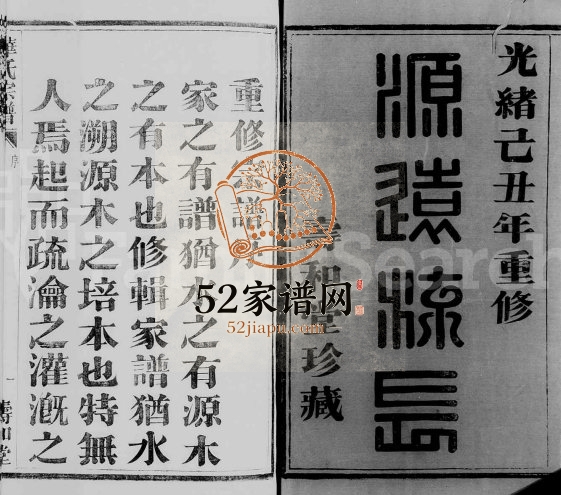 光緒己丑年重修
源遠流長
壽和堂珍藏
重修宗譜序
家之有譜猶水之有源木
之有本也修輯家譜猶水
之溯源木之培本也特無
人焉起而疏瀹之灌漑之
氏宗譜
序
一
壽和堂
52家谱网
52jiapu.com
Search